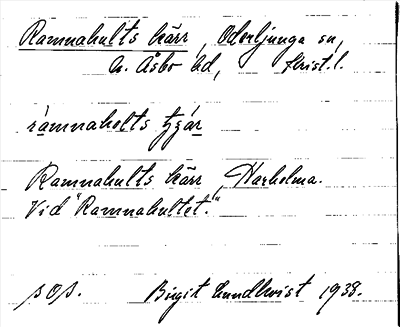 Ramnahults kärr, Oderljunga sn,
N. Åsbo hd, Krist. l.
ramnaholts tɕär
Ramnahults kärr, Harholma.
Vid "Ramnahultet."
sOs. Birgit Lundkvist 1938.